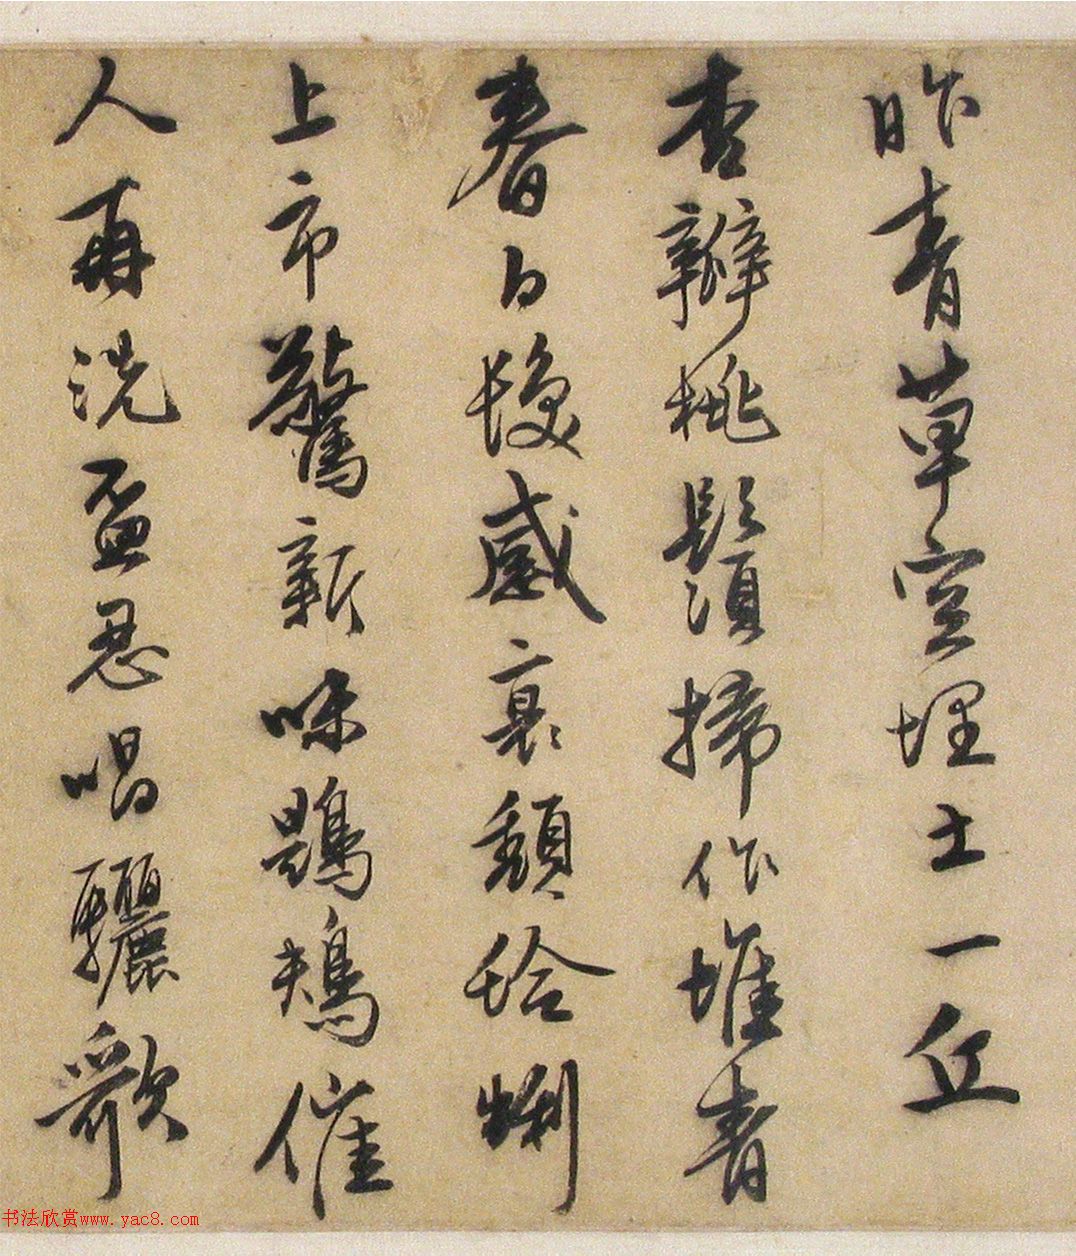 昨青草空埋土一丘
杏瓣桃鬚掃作堆青
春白髮感衰頹蛤蜊
上市驚新味鶗鴂催
人再洗盃忍唱驪歌
书法欣赏www.yac8.com